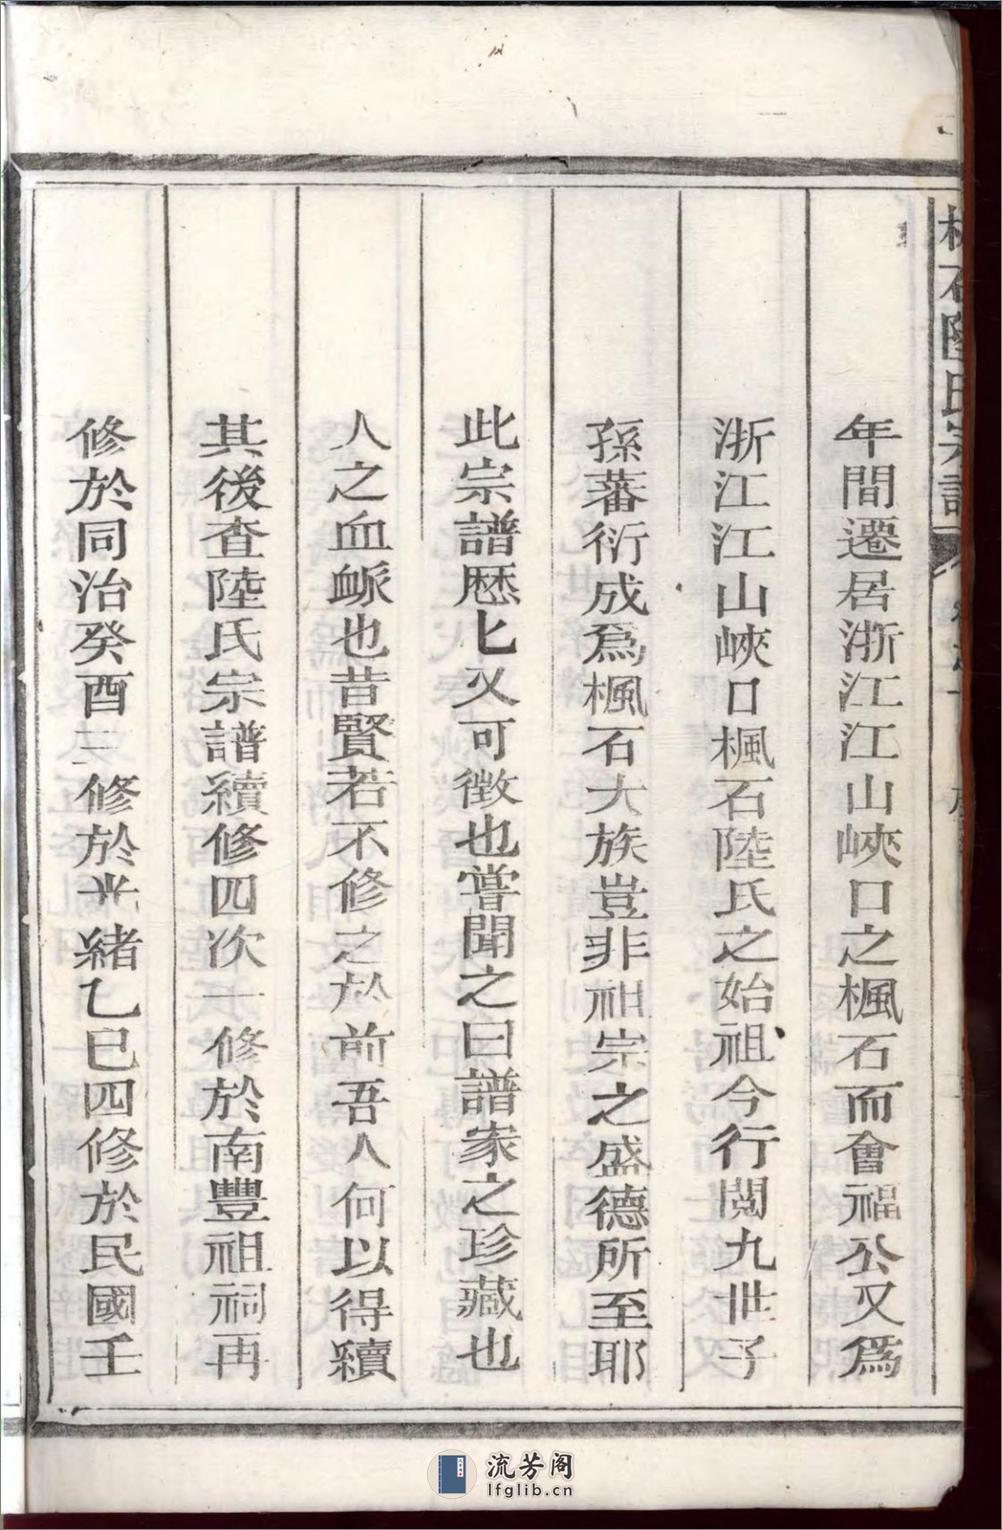 石陸氏宗譜
年間遷居浙江江山峽口之楓石而會福公又爲
浙江江山峽口楓石陸氏之始祖今行閱九世子
孫蕃衍成爲楓石大族豈非祖宗之盛德所至耶
此宗譜歷匕又可徵也嘗聞之曰譜家之珍藏也
人之血衇也昔賢若不修之於前吾人何以得續
其後查陸氏宗譜續修四次一修於南豐祖祠再
修於同治癸酉三修於光緒乙巳四修於民國壬
流芳阁
lfglib.cn